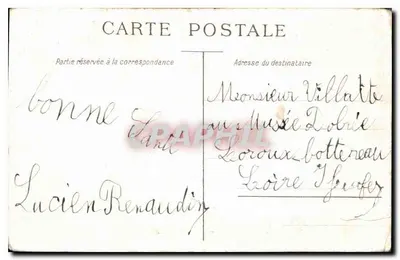 CARTE POSTALE
Partie réservée à la correspondance
Adresse du destinataire
bonne Santé
Lucien Renaudin
Monsieur Villatte
au Musée Dobrée
Loroux bottereau
Loire